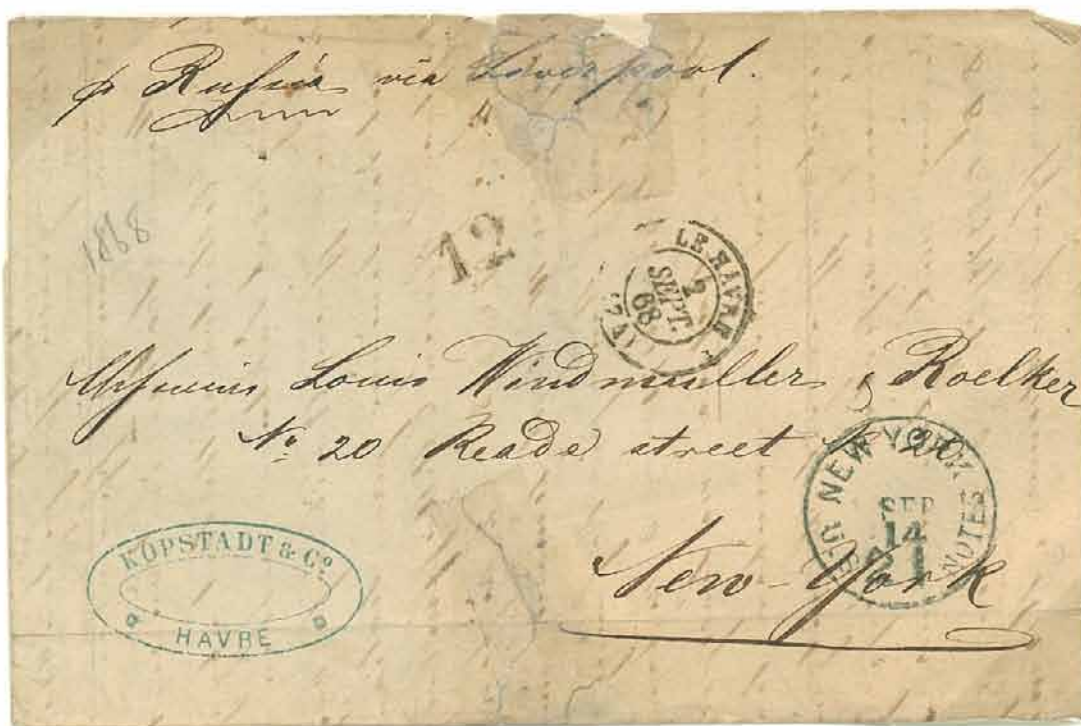 p Russia via Liverpool.
1868
12
LE HAVRE
2
SEPT.
68
Messieurs Louis Windmuller & Roelker
No. 20 Reade street No 20
NEW YORK
SEP
14
NOTES
New-York
KOPSTADT & Co.
HAVRE